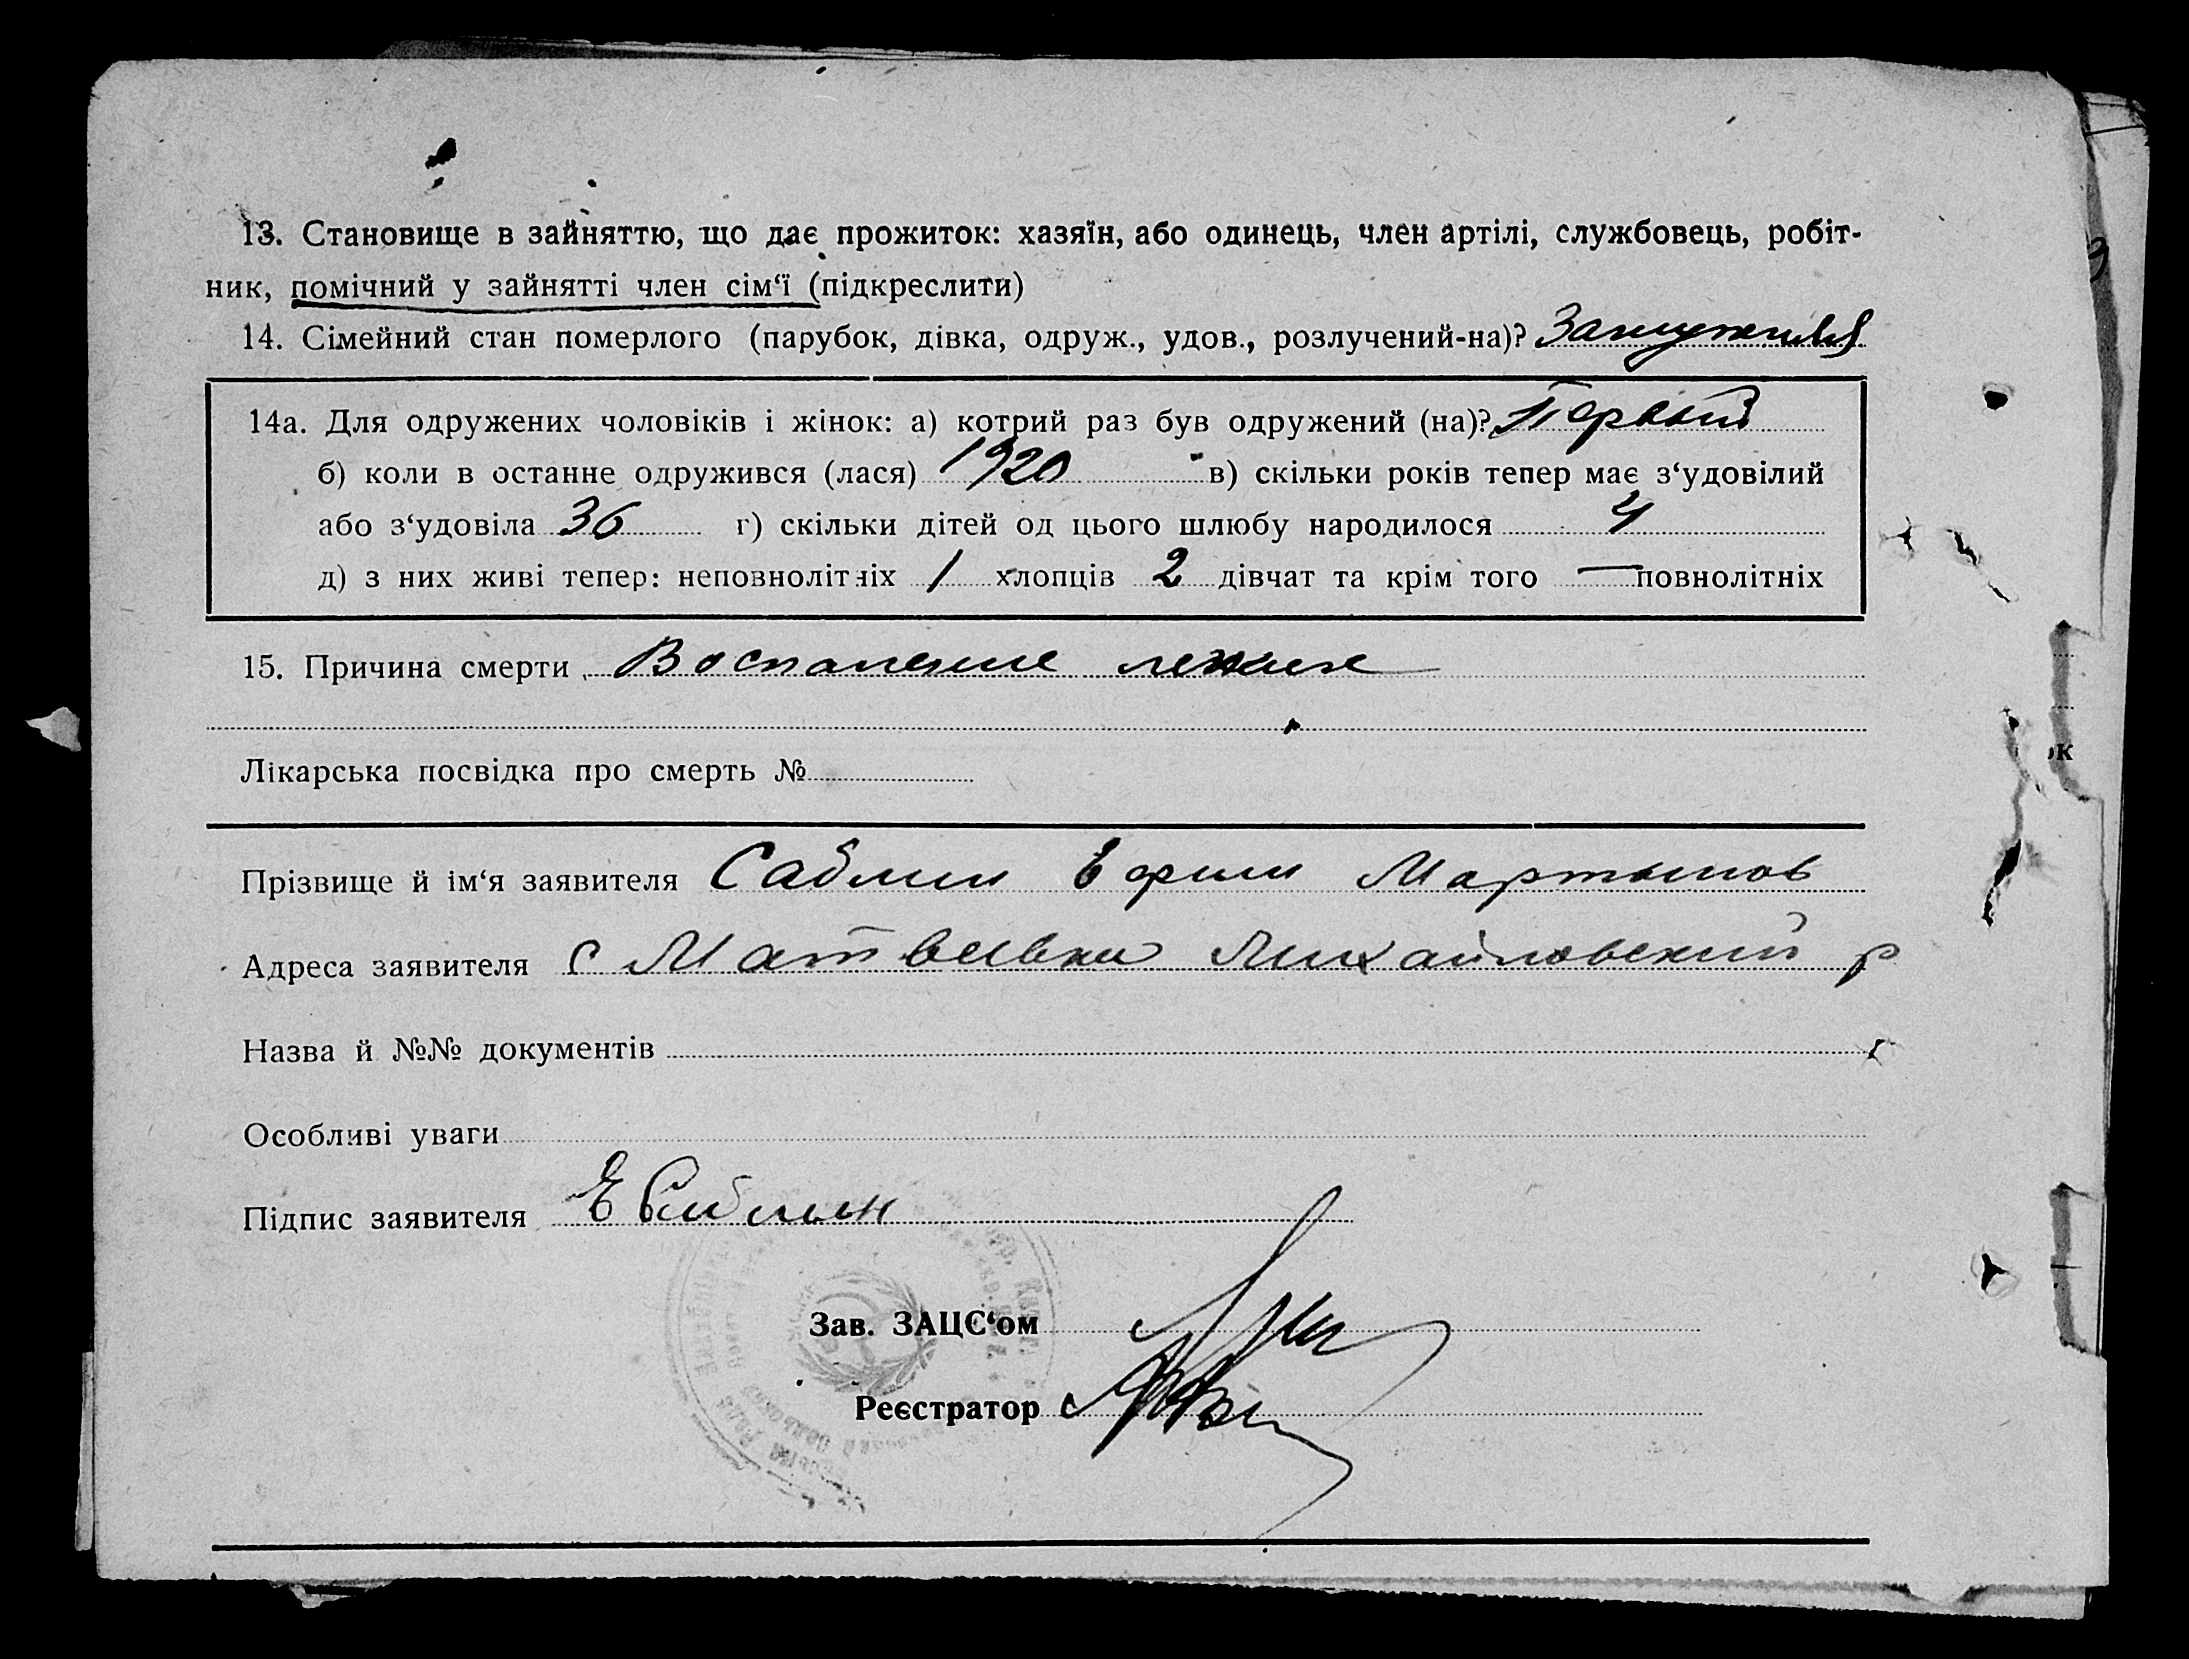 13. Становище в зайняттю, що дає прожиток: хазяїн, або одинець, член артілі, службовець, робіт-
ник, помічний у зайнятті член сім‘ї (підкреслити)
14. Сімейний стан померлого (парубок, дівка, одруж., удов., розлучений-на)? Замужняя
14а. Для одружених чоловіків і жінок: а) котрий раз був одружений (на)? Первый
б) коли в останне одружився (лася) 1920 в) скільки років тепер має з‘удовілий
або з‘удовіла 36 г) скільки дітей од цього шлюбу народилося 4
д) з них живі тепер: неповнолітніх 1 хлопців 2 дівчат та крім того — повнолітніх
15. Причина смерти Воспаление легких
Лікарська посвідка про смерть №
Прізвище й ім‘я заявителя Саблин Ефим Мартынов
Адреса заявителя с Матвеевки Михайловский р
Назва й №№ документів
Особливі уваги
Підпис заявителя Е Саблин
Зав. ЗАЦС‘ом
Реєстратор